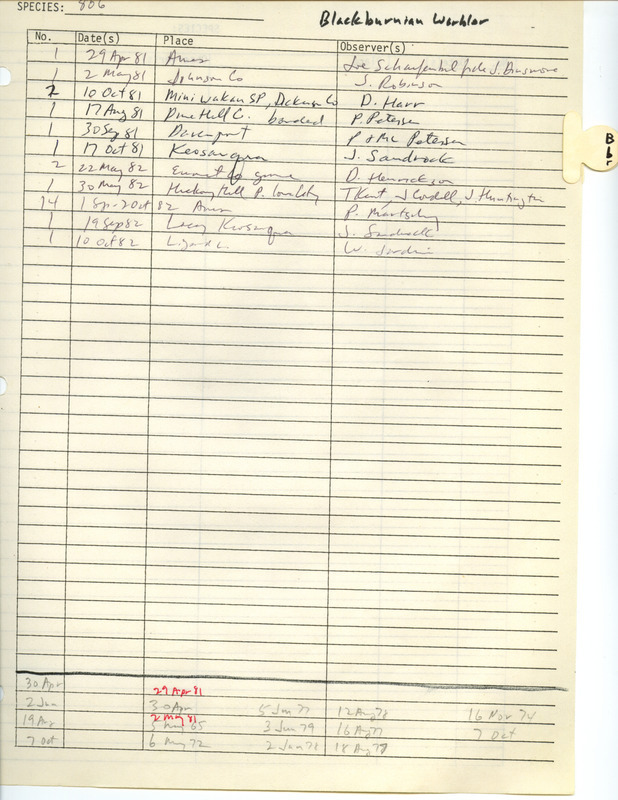 SPECIES: 806
Blackburnian Warbler
No. Date(s) Place Observer(s)
1 29 Apr 81 Ames Joe fide J. Dinsmore
1 2 May 81 Johnson Co J. Robinson
2 10 Oct 81 Mini wakan SP, Dickinson Co D. Harr
1 17 Aug 81 Pine Hill C. banded P. Petersen
1 30 Sep 81 Davenport P & Mc Petersen
1 17 Oct 81 Keosauqua J. Sandrock
2 22 May 82 D. Henrickson
1 30 May 82 Hickory Hill P. Iowa City T Kent, J Huntington
14 1 Sep-2 Oct 82 Ames P. Martsching
1 19 Sep 82 Lacey Keosauqua J. Sandrock
1 10 Oct 82 W.
B
b
30 Apr 29 Apr 81
2 Jun 30 Apr 5 Jun 77 12 Aug 78 16 Nov 74
2 May 81
19 Aug 65 3 Jun 79 16 Aug 77 7 Oct
7 Oct 6 May 72 2 Jun 78 18 Aug 77